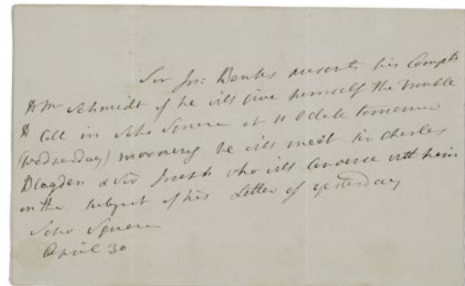 Sir Jos: Banks presents his Compts
to Mr Schmidt if he will Give himself the trouble
to Call in Soho Square at 11 OClock tomorrow
(Wednesday) morning he will meet Sir Charles
Blagden & Sir Joseph who will Converse with him
on the subject of his Letter of yesterday
Soho Square
April 30